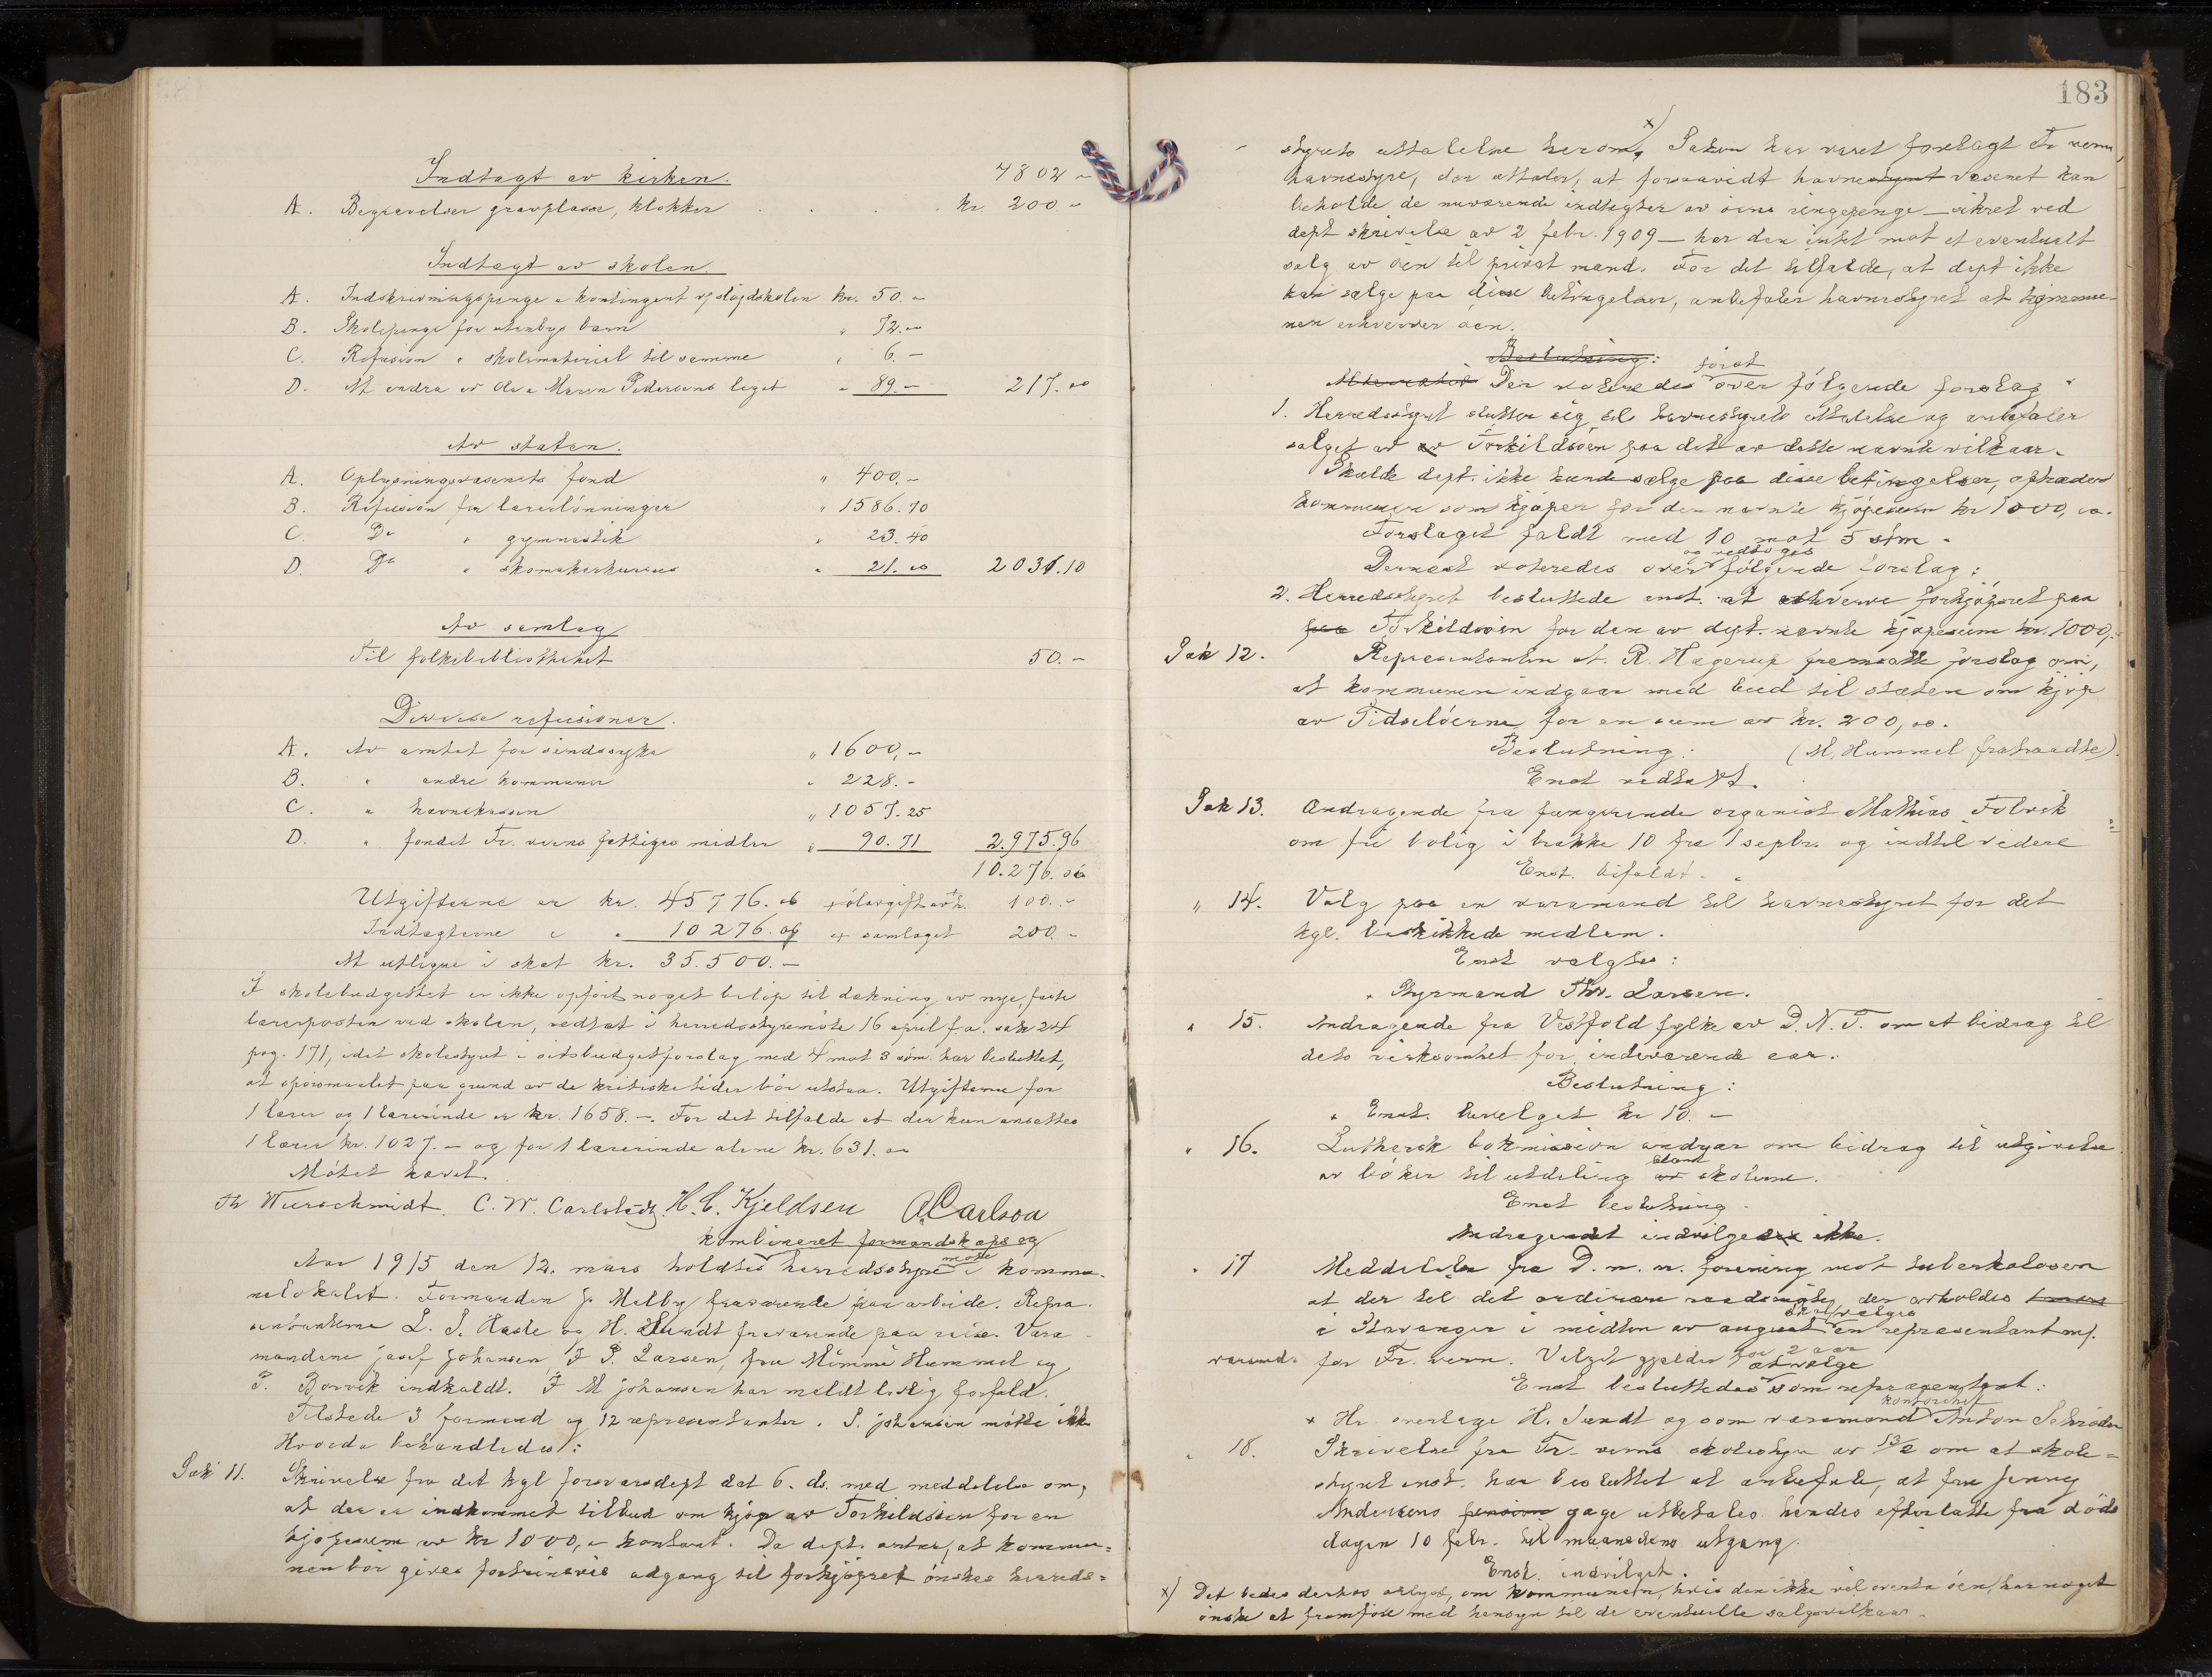 Indtægt av kirken. 4802 -
A. Begravelser gravplasse, klokker . . . . kr. 200. -
Indtægt av skolen.
A. Indskrivningspenge & kontingent v/ sløjdskolen kr. 50. -
B. Skolepenge for utenbys barn " 72. -
C. Refusion " skolemateriel til samme " 6. -
D. At endra av Ole & Maren Pedersens legat " 89. - 217. 00
Av staten.
A. Oplysningsvæsenets fond " 400. -
B. Refusion for lærerlønninger " 1586. 70
C. Do " gymnastik " 23. 40
D. Do " skomakerkursus " 21. 00 2031. 10
Av samlag
Til folkebiblioteket 50. -
Diverse refusioner.
A. Av amtet for sindssyke " 1600, -
B. " andre kommuner " 228. -
C. " havnekassen " 1057. 25
D. " fondet Fr. verns fattiges midler " 90. 71 2.975. 96
10.276. 06
Utgifterne er kr. 45776. 06 + ølavgift 100. -
Indtægterne " " 10276. 06 + samlaget 200. -
At utligne i skat kr. 35.500. -
I skolebudgettet er ikke opført noget beløp til dækning av nye, faste
lærerposten ved skolen, vedtat i herredsstyremøte 16 april f.a. sak 24
pag. 171, idet skolestyret i sit budgetforslag med 4 mot 3 stm. har besluttet,
at spørsmaalet paa grund av de kritiske tider bør utstaa. Utgifterne for
1 lærer og 1 lærerinde er kr. 1658. -. For det tilfælde at der kun ansættes
1 lærer kr. 1027. - og for 1 lærerinde alene kr. 631. 00
Møtet hævet.
Th Wurschmidt. C. W. Carlstedt. H. C. Kjeldsen A Carlson
kombineret formandskaps og
Aar 1915 den 12. mars holdtes herredsstyremøte i kommu-
nelokalet. Formanden J. Melby fraværende paa arbeide. Repræ-
sentanterne L. S. Hasle og H. Sundt fraværende paa reise. Vara-
mændene Josef Johansen, F P. Larsen, fru Mimmi Hummel og
P. Borvik indkaldt. F M Johansen har meldt lovlig forfald.
Tilstede 3 formænd og 12 repræsentanter. S. Johansen møtte ikke
Hvorda behandledes:
Sak 11. Skrivelse fra det kgl forsvarsdept dat 6. ds. med meddelelse om,
at der er indkommet tilbud om kjøp av Torkildsøen for en
kjøpesum av kr 1000,- kontant. Da dept. antar, at kommu-
nen bør gives fortrinsvis adgang til forkjøpsret ønskes herreds-
183
styrets uttalelse herom, x) Saken har været forelagt Fr verns
havnestyre, der uttaler, at forsaavidt havnestyret væsenet kan
beholde de nuværende indtægter av øens ringepenge - sikret ved
dept skrivelse av 2 febr. 1909 - har den intet mot et eventuelt
salg av øen til privat mand. For det tilfælde, at dept ikke
kan sælge paa disse betingelser, anbefaler havnestyret at kommu-
nen erhverver øen.
Beslutning:
Der voteredes først over følgende forslag
1. Herredsstyret slutter sig til havnestyrets uttalelse og anbefaler
salget av av Torkildsøen paa det av dette nævnte vilkaar.
Skulde dept. ikke kunde sælge paa disse betingelser, optræder
kommunen som kjøper for den nævnte kjøpesum kr 1000, 00.
Forslaget faldt med 10 mot 5 stm.
Dernæst voteredes over og vedtoges følgende forslag:
2. Herredsstyret besluttede enst. at erhverve forkjøpsret paa
paa Torkildsøen for den av dept. nævnte kjøpesum kr. 1000,-
Sak 12. Repræsentanten A. R. Hagerup fremsatte forslag om,
at kommunen indgaar med bud til staten om kjøp
av Tidseløerne for en sum av kr. 200, 00.
Beslutning: (M. Hummel fratraadte).
Enst vedtatt.
Sak 13. Andragende fra fungerende organist Mathias Tolvik
om fri bolig i brakke 10 fra 1 septbr. og indtil videre
Enst. bifaldt.
" 14. Valg paa en varamand til havnestyret for det
kgl. beskikkede medlem.
Enst valgtes:
Styrmand Thv. Larsen.
" 15. Andragende fra Vestfold fylke av D. N. T. om et bidrag til
dets virksomhet for indeværende aar.
Beslutning:
Enst. bevilget kr 10. -
" 16. Luthersk bokmission andrar om bidrag til utgivelse
av bøker til utdeling blandt skolerne.
Enst beslutning.
Andragendet indvilges ikke.
" 17 Meddelelse fra D. n. n. forening mot tuberkulosen
at der til det ordinære raadsmøte der avholdes
i Stavanger i midten av august skal vælges en repræsentant m/.
varamd. for Fr. vern. Valget gjælder for 2 aar
Enst besluttedes at vælge som repræsentant:
x Hr. overlæge H. Sundt og som varamand kontorchef Anton Schrøder
" 18. Skrivelse fra Fr. verns skolestyre av 13/2 om at skole-
styret enst. har besluttet at anbefale, at fru Jenny
Andersens pension gage utbetales hendes efterlatte fra døds
dagen 10 febr. til maanedens utgang.
Enst. indvilget.
x) Det bedes derhos oplyst, om kommunen, hvis den ikke vil overta øen, har noget
ønske at fremføre med hensyn til de eventuelle salgsvilkaar.